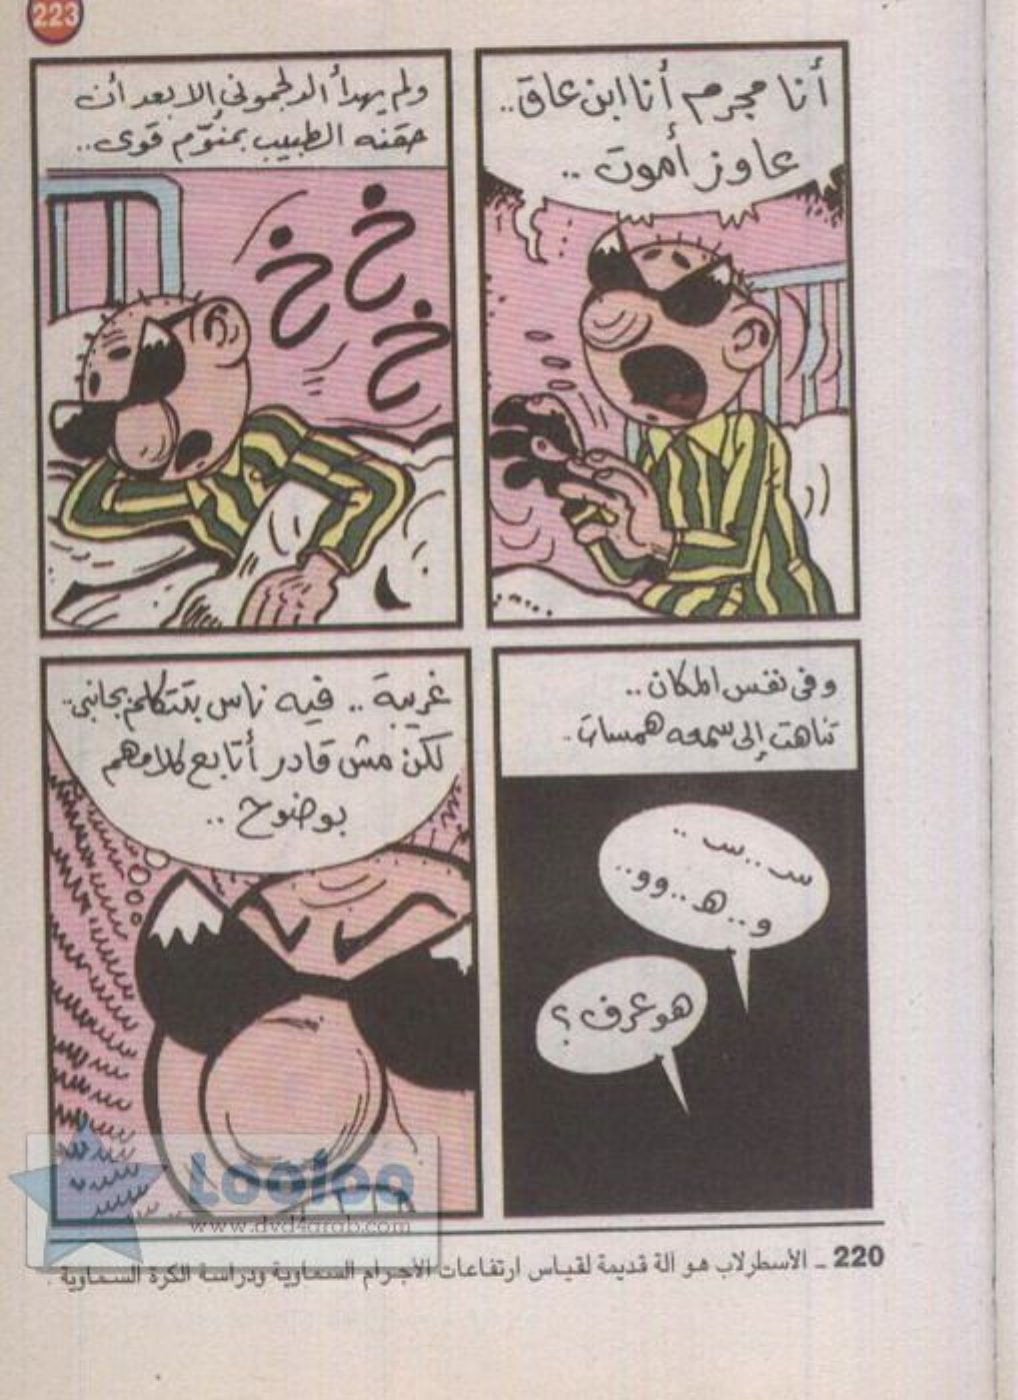 223
أنا مجرم أنا ابن عاق..
عاوز أموت ..
ولم يهدأ الدلجموني إلا بعد أن
حقنه الطبيب بمنوّم قوى..
خ خ خ
وفى نفس المكان ..
تناهت إلى سمعه همسات ..
س..س ..
و..هـ..وو..
هو عرف ؟
غريبة .. فيه ناس بتتكلم بجانبى..
لكن مش قادر أتابع كلامهم
بوضوح ..
Looloo
www.dvd4arab.com
220 ـ الأسطرلاب هو آلة قديمة لقياس ارتفاعات الأجرام السماوية ودراسة الكرة السماوية .